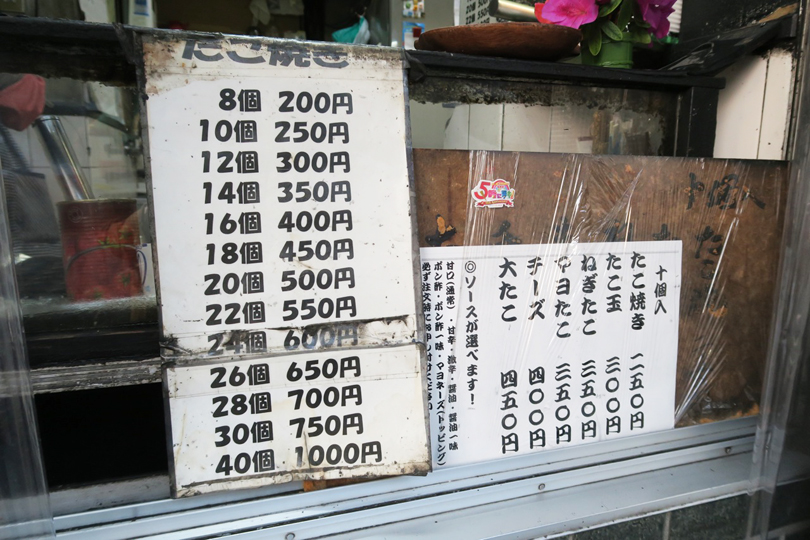 たこ焼き
8個 200円
10個 250円
12個 300円
14個 350円
16個 400円
18個 450円
20個 500円
22個 550円
24個 600円
26個 650円
28個 700円
30個 750円
40個 1000円
十個入
たこ焼き 二五〇円
たこ玉 三〇〇円
ねぎたこ 三五〇円
マヨたこ 三五〇円
チーズ 四〇〇円
大たこ 四五〇円
◎ソースが選べます!
甘口(通常)・甘辛・激辛・醤油・醤油一味
ポン酢・ポン酢一味・マヨネーズ(トッピング)
必ず注文時にお申し付けください